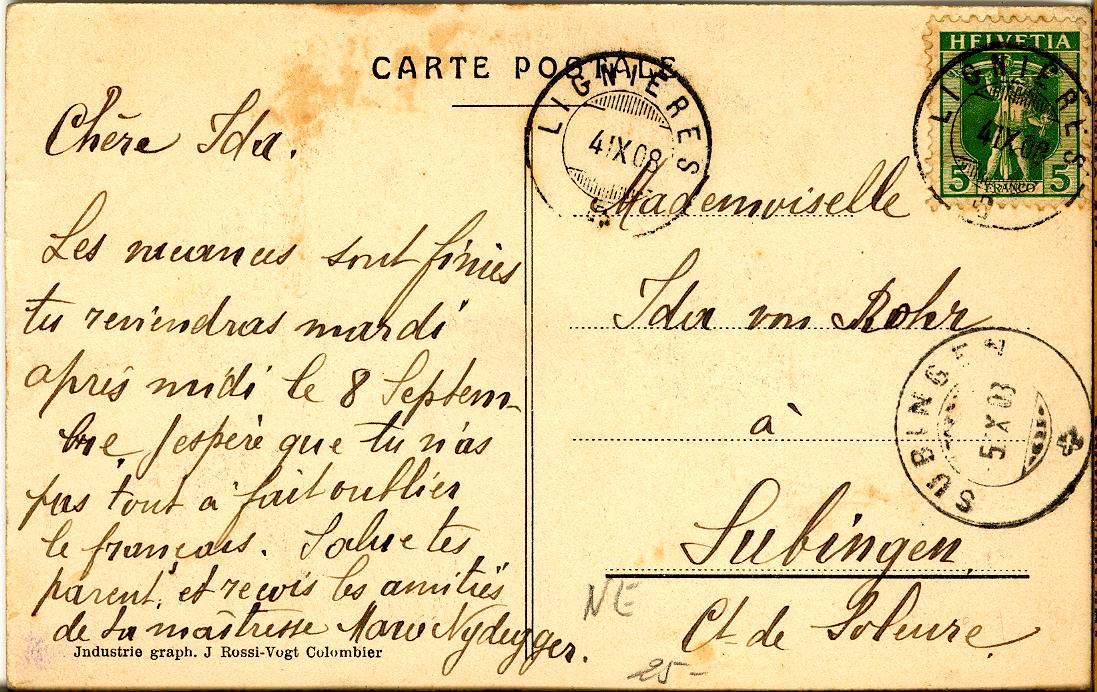 CARTE POSTALE
Chère Ida.
Les vacances sont finies
tu reviendras mardi
après midi le 8 Septem-
bre. J'espère que tu n'as
pas tout à fait oublier
le français. Salue tes
parent, et reçois les amitiés
de ta maîtresse Marie Nydegger.
Jndustrie graph. J Rossi-Vogt Colombier
LIGNIÈRES
4 IX 08
HELVETIA
5 FRANCO 5
LIGNIÈRES
4 IX 08
Mademoiselle
Ida von Rohr
à
SUBINGEN
5 IX 08
Subingen
Ct. de Soleure.
NE
25-